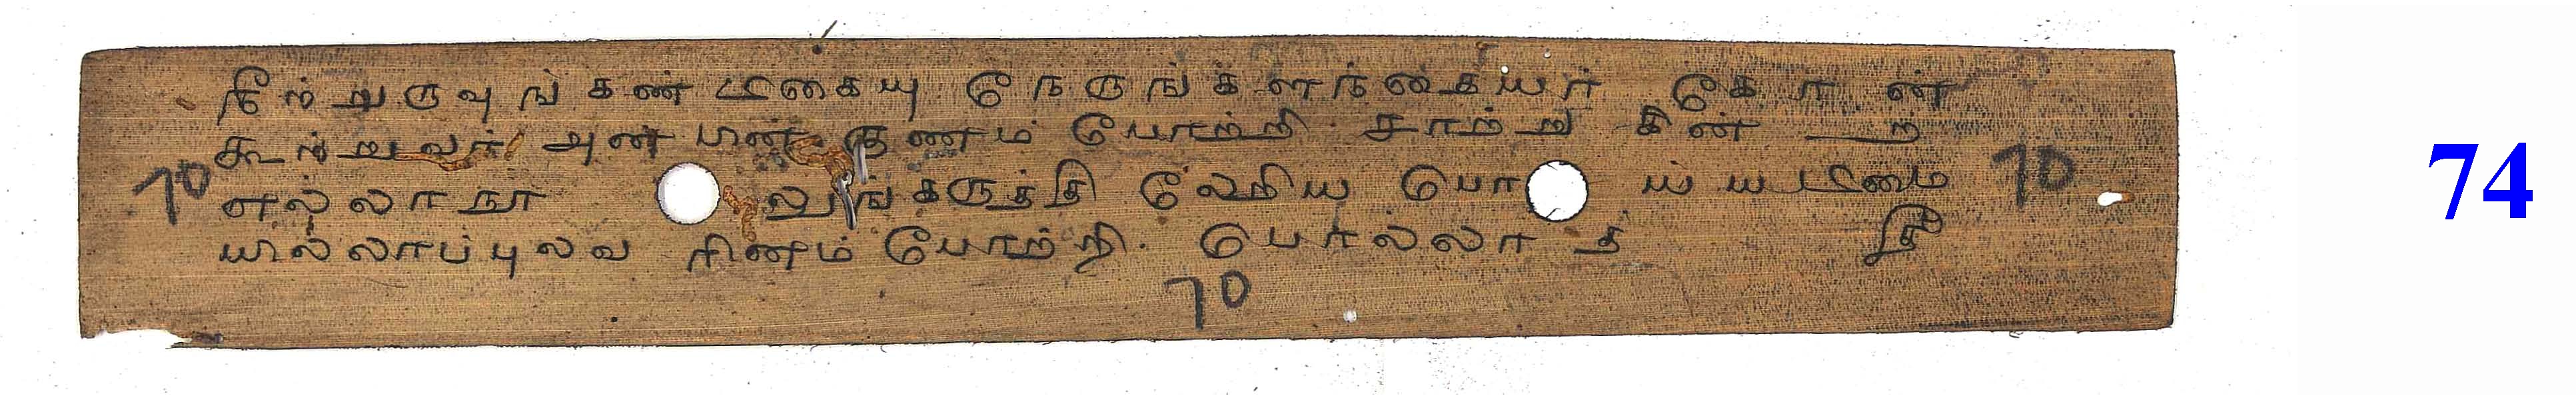 நீற்றுருவுங் கண்டிகையு நேருங் களந்கையர் கோன்
கூற்றுவர் அண் பண் குணம் போற்றி சாற்றுகின்ற
70 எல்லா நூலுங் கருத்தி லேறிய பொய்யடிமை 70
யில்லாப்புலவ ரினம் போற்றி. பொல்லாத தீ
70
74